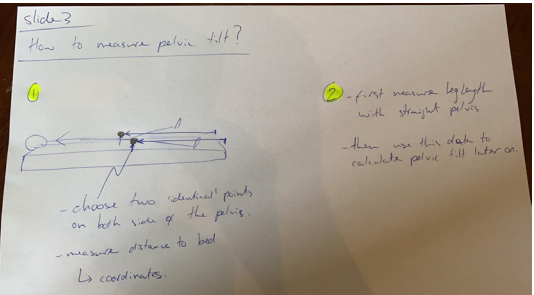 slide 3
How to measure pelvic tilt?
1
- choose two 'identical' points
on both side of the pelvis.
- measure distance to bed
↳ coordinates.
2
- first measure leg length
with straight pelvis
- then use this data to
calculate pelvic tilt later on.